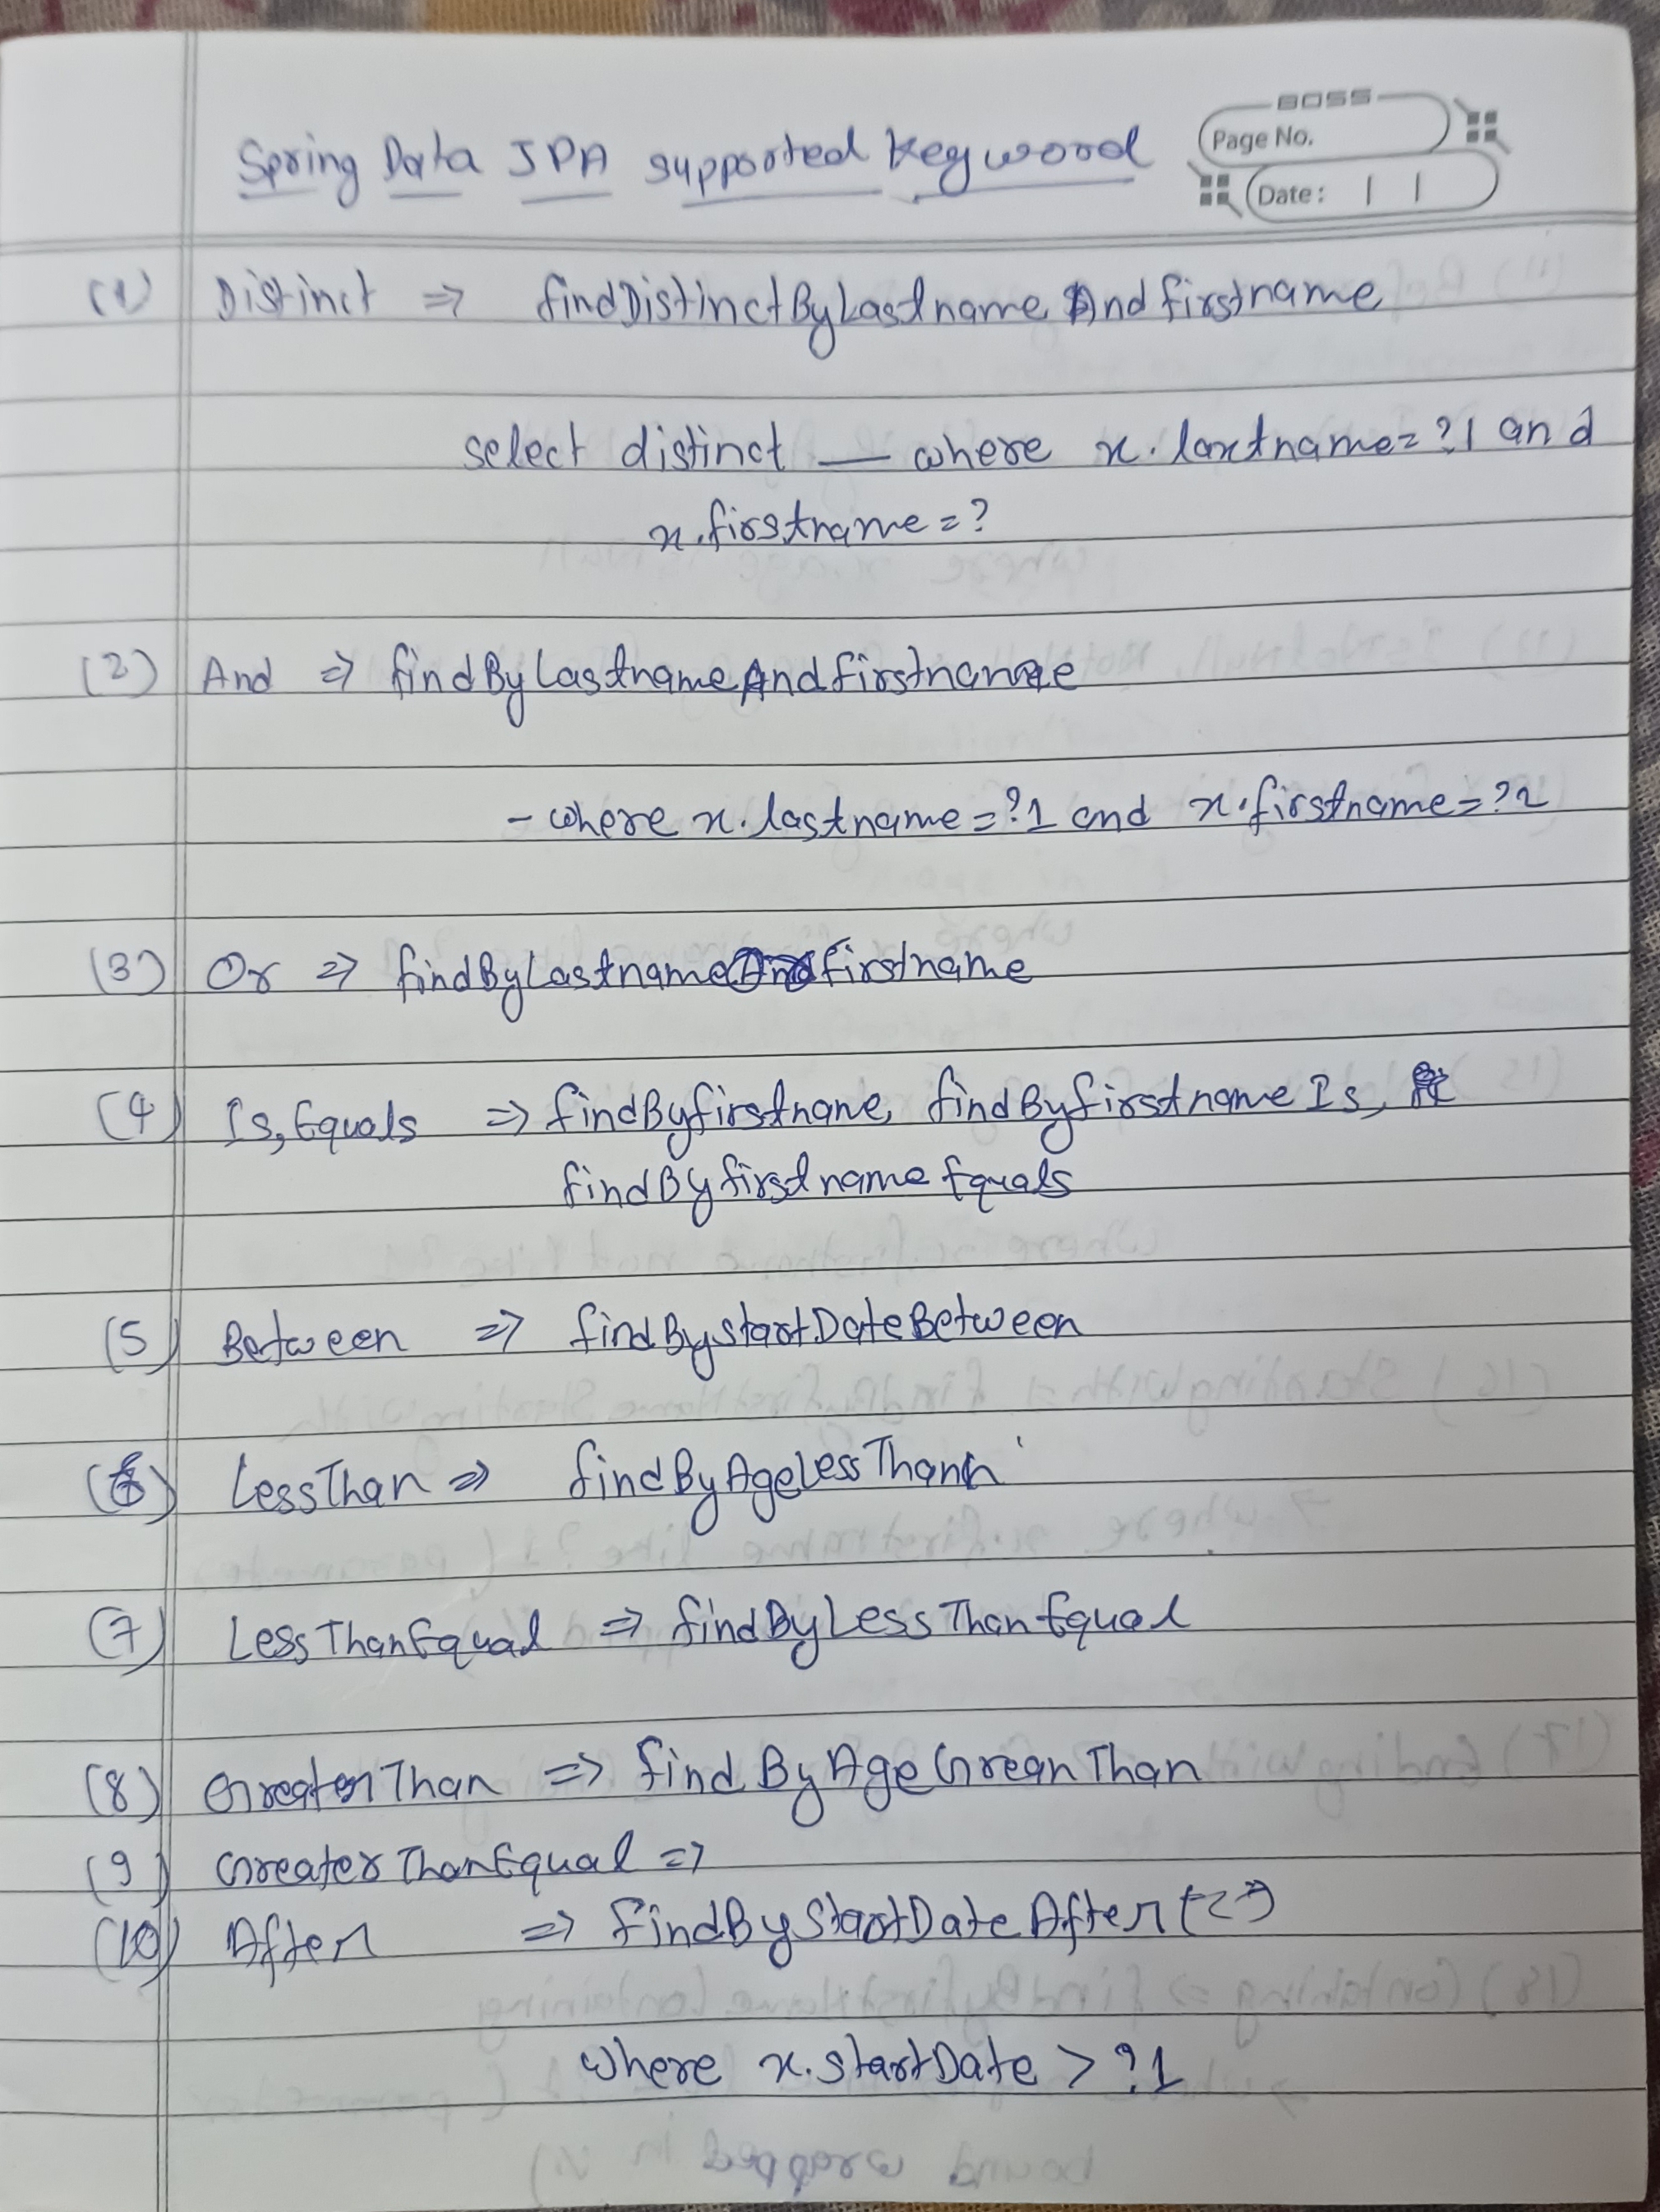 BOSS
Page No.
Date:
Spring Data JPA supported Keyword
(1) Distinct => findDistinctByLastnameAndfirstname
select distinct — where x.lastname=?1 and
x.firstname=?
(2) And => findByLastnameAndfirstname
- where x.lastname=?1 and x.firstname=?2
(3) Or => findByLastname firstname
(4) Is, Equals => findByfirstname, findByfirstnameIs,
findByfirstnameEquals
(5) Between => findBystartDateBetween
(6) LessThan => findByAgeLessThan
(7) LessThanEqual => findByLessThanEqual
(8) GreaterThan => findByAgeGreanThan
(9) GreaterThanEqual =>
(10) After => findByStartDateAfter
where x.startDate > ?1